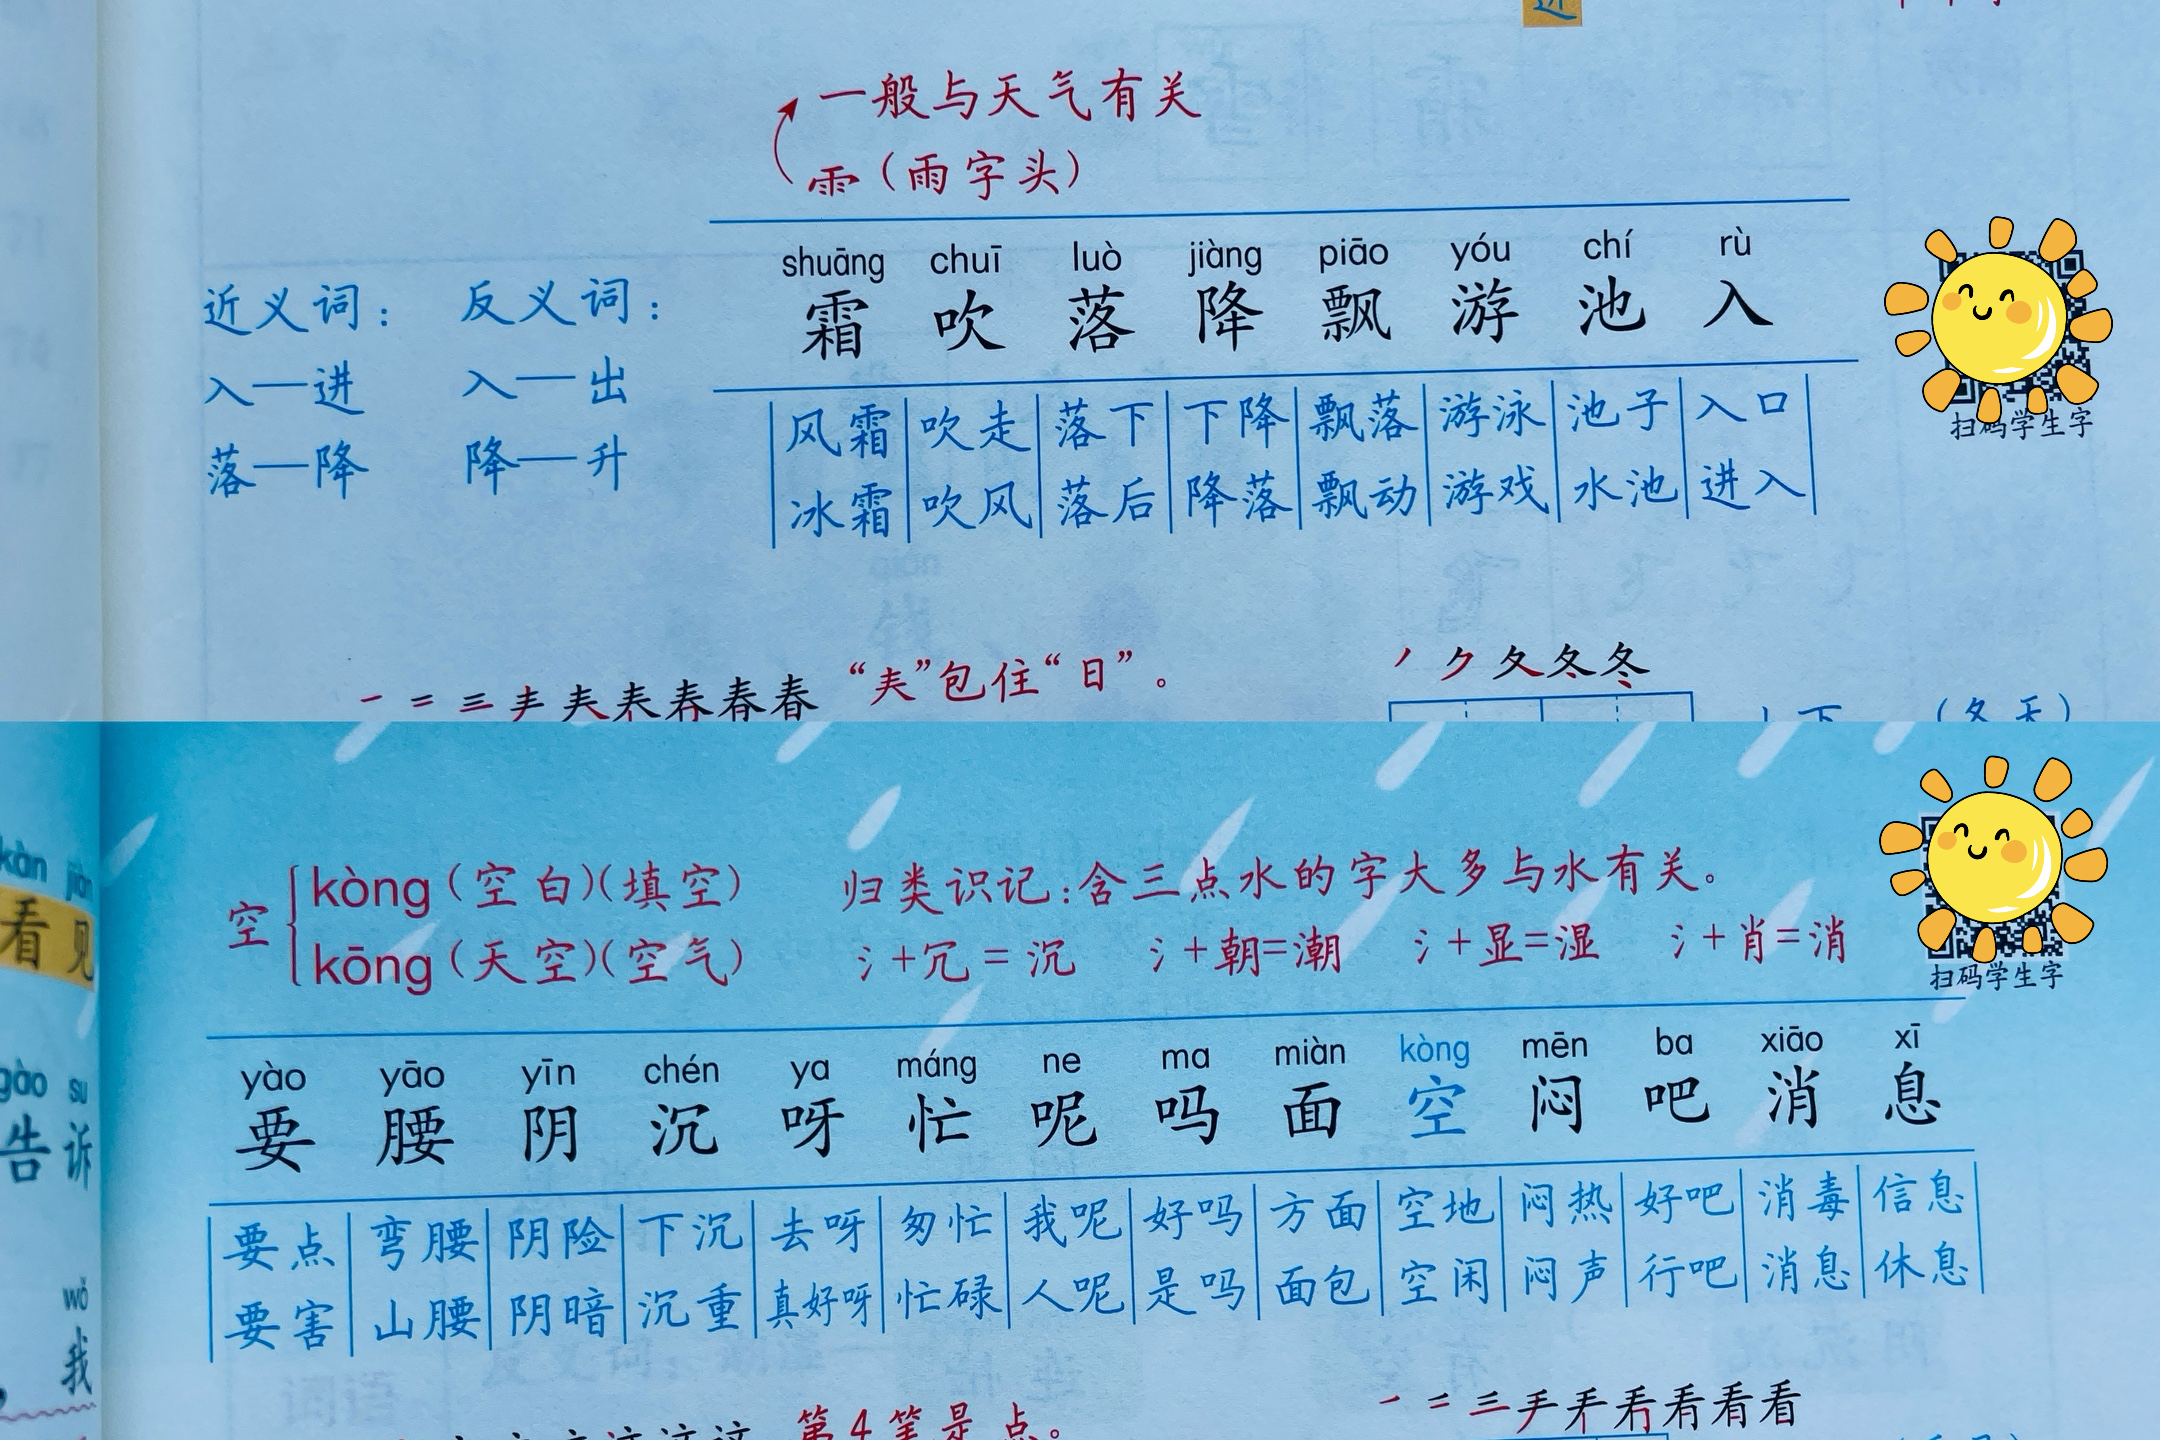 一般与天气有关
⻗（雨字头）
shuāng chuī luò jiàng piāo yóu chí rù
霜 吹 落 降 飘 游 池 入
近义词： 反义词：
入——进 入——出
落——降 降——升
风霜 吹走 落下 下降 飘落 游泳 池子 入口
冰霜 吹风 落后 降落 飘动 游戏 水池 进入
扫码学生字
“𡗗”包住“日”。
（冬天）
空 kòng（空白）（填空）
kōng（天空）（空气）
归类识记：含三点水的字大多与水有关。
氵+冗=沉 氵+朝=潮 氵+显=湿 氵+肖=消
扫码学生字
yào yāo yīn chén ya máng ne ma miàn kòng mēn ba xiāo xī
要 腰 阴 沉 呀 忙 呢 吗 面 空 闷 吧 消 息
要点 弯腰 阴险 下沉 去呀 匆忙 我呢 好吗 方面 空地 闷热 好吧 消毒 信息
要害 山腰 阴暗 沉重 真好呀 忙碌 人呢 是吗 面包 空闲 闷声 行吧 消息 休息
kàn jiàn
看见
gào su
告诉
wǒ
我
第4笔是点。